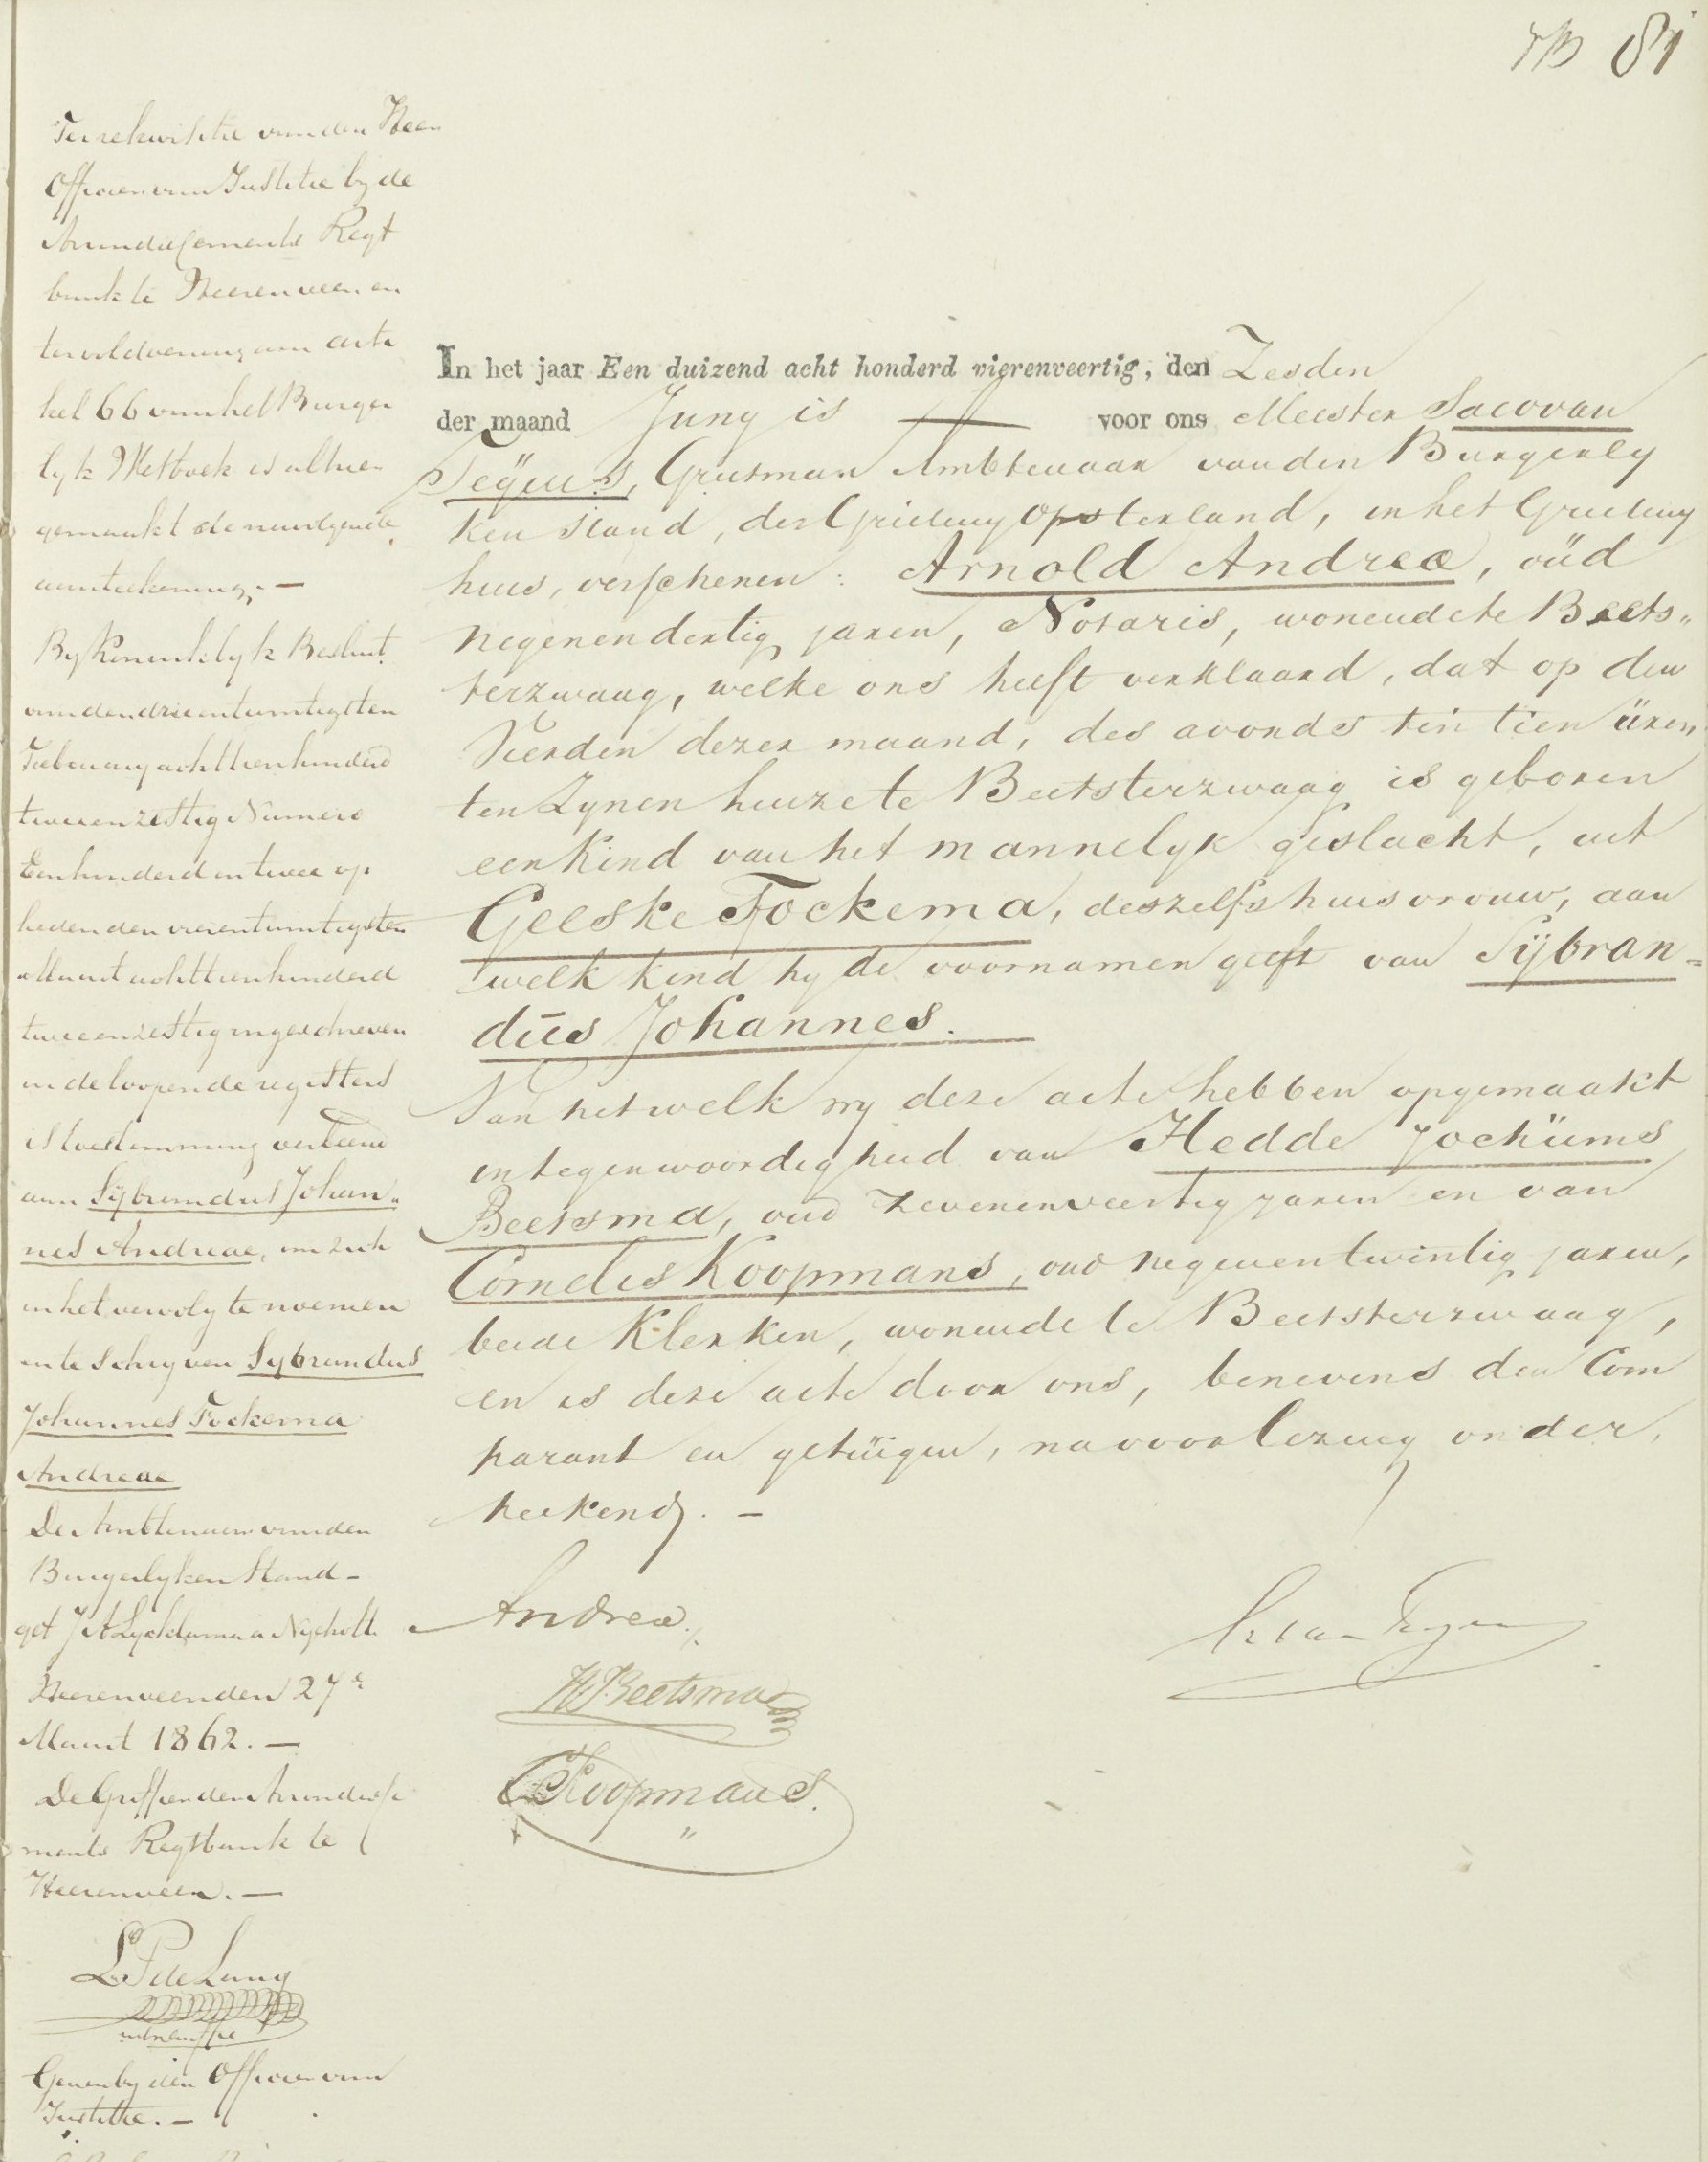 81
Ter rekwisitie van den Heer
Officier van Justitie by de
Arrondissements Regt
bank te Heerenveen en
ter voldoening aan arti
kel 66 van het Burger
lyk Wetboek is alhier
gemaakt de navolgende
aanteekening. —
By Koninklyk Besluit
van den drieentwintigsten
Februarij achttienhonderd
tweeenzestig Numero
Eenhonderd en twee op
heden den vierentwintigsten
Maart achttienhonderd
tweeenzestig ingeschreven
in de loopende registers
is toestemming verleend
aan Sÿbrandus Johan„
nes Andreae, om zich
in het vervolg te noemen
en te schryven Sybrandus
Johannes Fockema
Andreae
De Ambtenaar van den
Burgerlyken Stand -
get J A Lycklama a Nyeholt
Heerenveen den 27e
Maart 1862. —
De Griffier der Arrondisse
ments Regtbank te
Heerenveen. —
Gezien by den Officier van
Justitie. —
In het jaar Een duizend acht honderd vierenveertig, den Zesden
der maand Junÿ is — voor ons Meester Saco van
Teÿens, Grietman Ambtenaar van den Burgerly
ken Stand, der Grieteny Opsterland, in het Grieteny
huis, verschenen: Arnold Andreæ, oüd
negenendertig jaren, Notaris, wonende te Beets„
terzwaag, welke ons heeft verklaard, dat op den
Vierden dezer maand, des avonds ten tien üren,
ten Zynen huize te Beetsterzwaag is geboren
een Kind van het mannelyk geslacht, uit
Geeske Fockema, deszelfs huisvrouw, aan
welk kind hy de voornamen geeft van Sÿbran=
düs Johannes.
Van het welk wy deze acte hebben opgemaakt
in tegenwoordigheid van Hedde Jochüms
Beetsma, oud zevenenveertig jaren en van
Cornelis Koopmans, oud negenentwintig jaren,
beide Klerken, wonende te Beetsterzwaag,
en is deze acte door ons, benevens den Com
parant en getüigen, na voorlezing onder,
teekend. —
Andreæ.
HJBeetsma
CKoopmans.